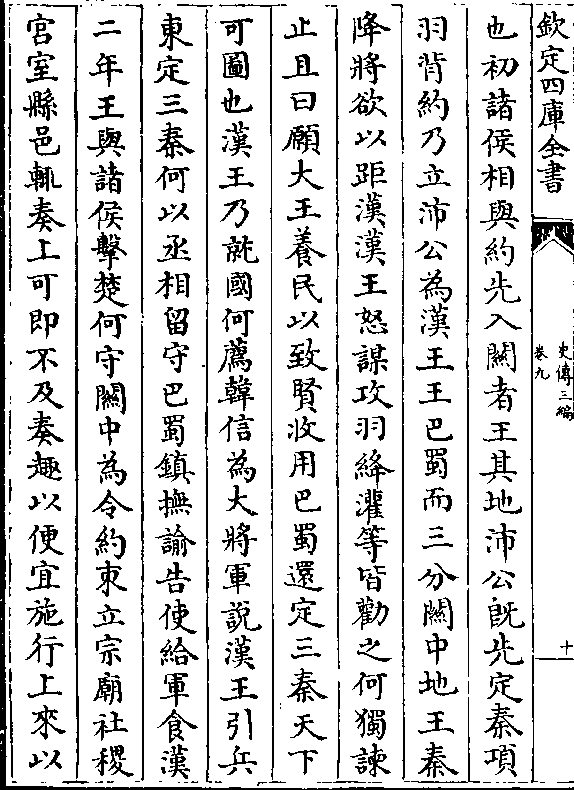 欽定四庫全書
史傳三編
卷九
十
也初諸侯相與約先入關者王其地沛公旣先定秦項
羽背約乃立沛公為漢王王巴蜀而三分關中地王秦
降將欲以距漢漢王怒謀攻羽絳灌等皆勸之何獨諫
止且曰願大王養民以致賢收用巴蜀還定三秦天下
可圖也漢王乃就國何薦韓信為大將軍說漢王引兵
東定三秦何以丞相留守巴蜀鎮撫諭告使給軍食漢
二年王與諸侯擊楚何守關中為令約束立宗廟社稷
宮室縣邑輒奏上可即不及奏趣以便宜施行上來以